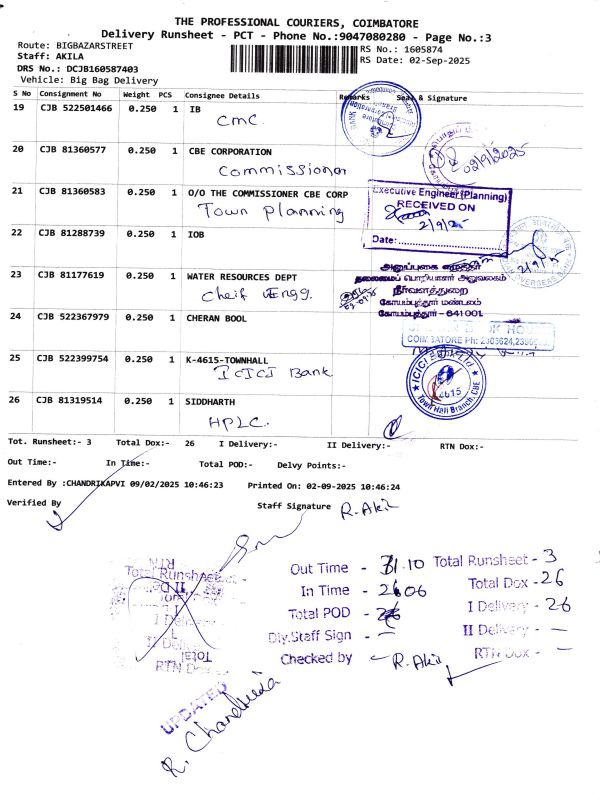 THE PROFESSIONAL COURIERS, COIMBATORE
Delivery Runsheet - PCT - Phone No.:9047080280 - Page No.:3
Route: BIGBAZARSTREET
RS No.: 1605874
Staff: AKILA
RS Date: 02-Sep-2025
DRS No.: DCJB160587403
Vehicle: Big Bag Delivery
S No Consignment No Weight PCS Consignee Details Remarks Seal & Signature
19 CJB 522501466 0.250 1 IB
CMC
20 CJB 81360577 0.250 1 CBE CORPORATION
Commissioner
02/9/2025
21 CJB 81360583 0.250 1 O/O THE COMMISSIONER CBE CORP
Town Planning
Executive Engineer (Planning)
RECEIVED ON
2/9/25
Date:
22 CJB 81288739 0.250 1 IOB
23 CJB 81177619 0.250 1 WATER RESOURCES DEPT
Cheif Engg.
அனுப்புகை எழுத்தர்
தலைமைப் பொறியாளர் அலுவலகம்
நீர்வளத்துறை
கோயம்புத்தூர் மண்டலம்
கோயம்புத்தூர் - 641001
24 CJB 522367979 0.250 1 CHERAN BOOL
COIMBATORE Ph: 2303624,
25 CJB 522399754 0.250 1 K-4615-TOWNHALL
ICICI Bank
ICICI Bank
4615
Town Hall Branch, CBE
26 CJB 81319514 0.250 1 SIDDHARTH
HPLC.
Tot. Runsheet:- 3 Total Dox:- 26 I Delivery:- II Delivery:- RTN Dox:-
Out Time:- In Time:- Total POD:- Delvy Points:-
Entered By :CHANDRIKAPVI 09/02/2025 10:46:23 Printed On: 02-09-2025 10:46:24
Verified By
Staff Signature R. Akil
Out Time - 11.10 Total Runsheet - 3
In Time - 2.06 Total Dox - 26
Total POD - 26 I Delivery - 26
Dly.Staff Sign - – II Delivery - –
Checked by – R. Akil RTN Dox - –
RTN
Total Runsheet
II Delivery
I Delivery
II Delivery
Total
RTN Dox
UPDATED
R. Chandrika